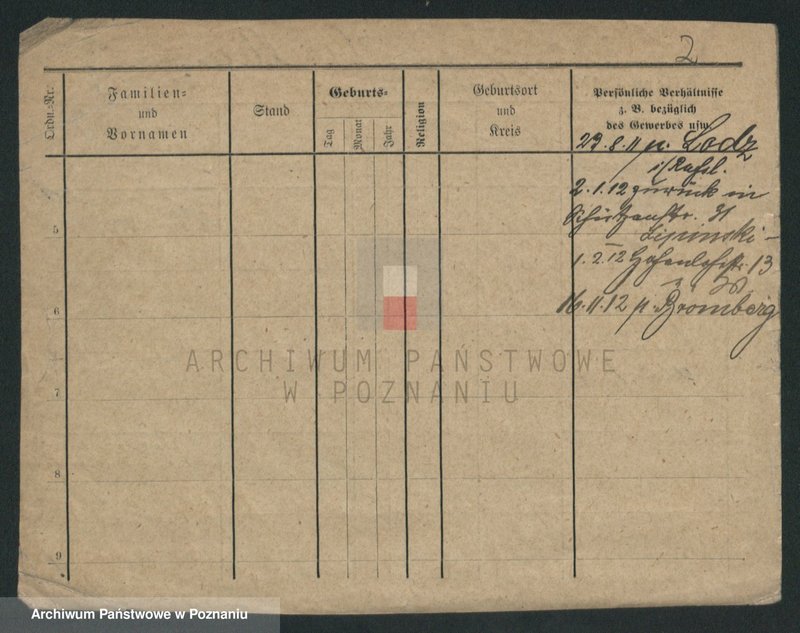 2
Ordn.-Nr.
Familien-
und
Vornamen
Stand
Geburts-
Tag
Monat
Jahr
Religion
Geburtsort
und
Kreis
Persönliche Verhältnisse
z. B. bezüglich
des Gewerbes usw.
29.8.11 n. Lodz
i/Rußl.
2.1.12 zurück in
Schützenstr. 31
Lipinski -
1.2.12 Hohenlohestr. 13
16.11.12 n. Bromberg
5
6
7
8
9
ARCHIWUM PAŃSTWOWE
W POZNANIU
Archiwum Państwowe w Poznaniu